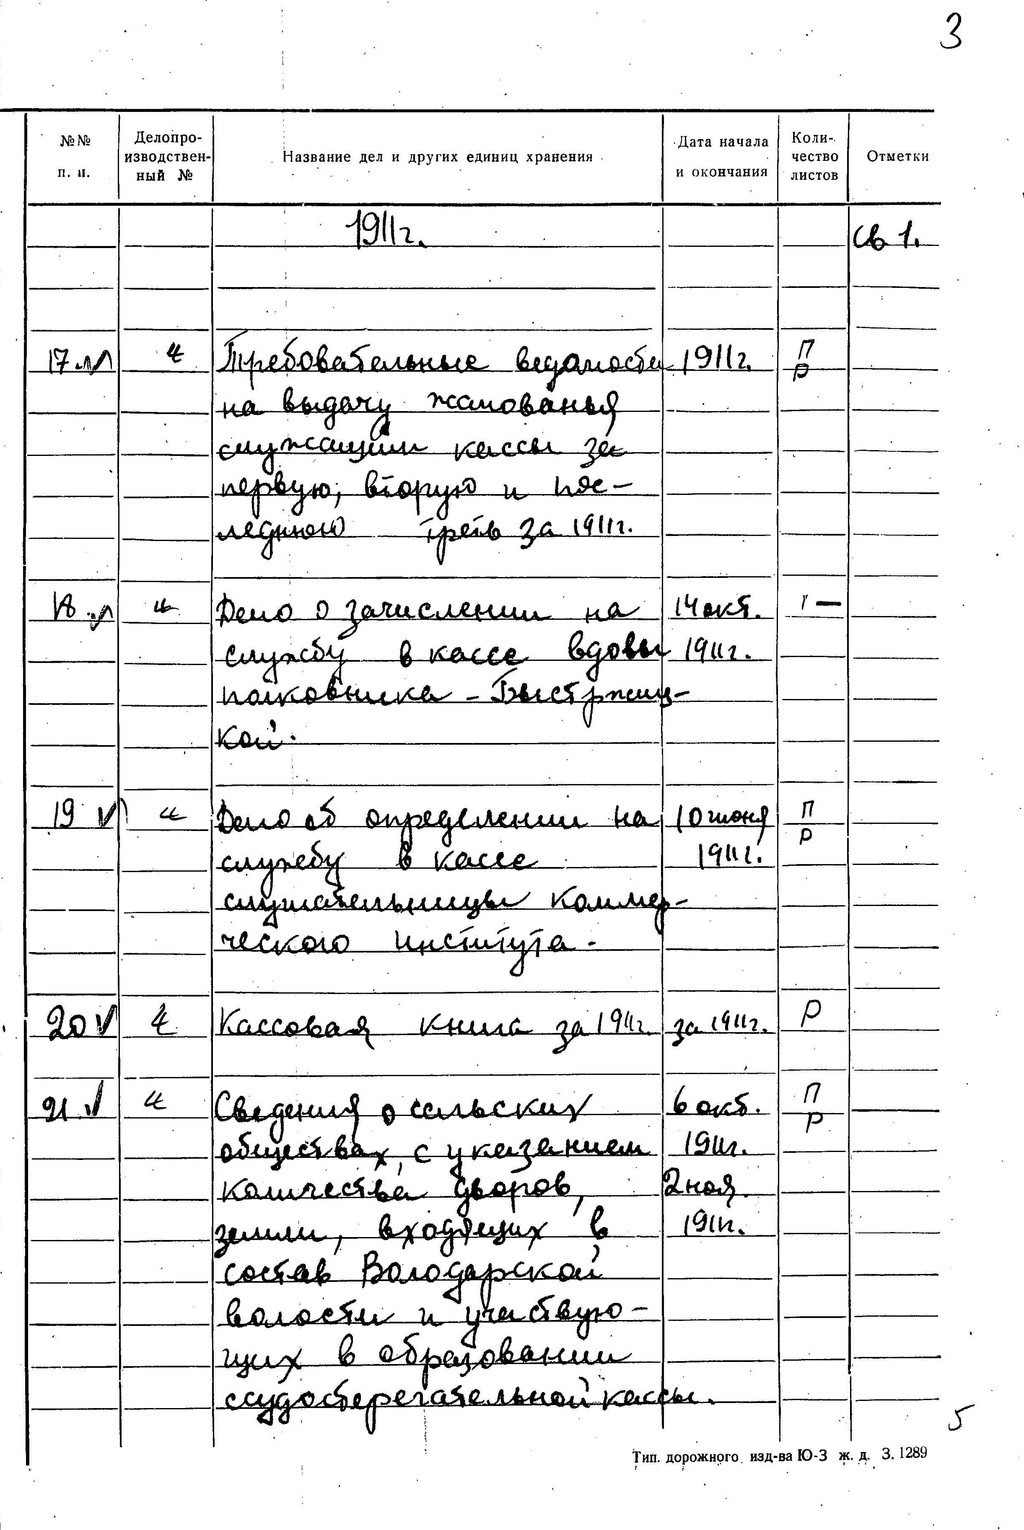 3
№№ п. п.
Делопро-
изводствен-
ный №
Название дел и других единиц хранения
Дата начала
и окончания
Коли-
чество
листов
Отметки
1911г.
св 1.
17
Требовательные ведомости 1911г. П
на выдачу жалованья Р
служащим кассы за
первую, вторую и пос-
леднюю треть за 1911г.
18
Дело о зачислении на 14 окт. 1 —
службу в кассе вдовы 1911г.
полковника - Быстржиц-
кой.
19
Дело об определении на 10 июня П
службу в кассе 1911г. Р
слушательницы коммер-
ческого института -
20
Кассовая книга за 1911г. за 1911г. Р
21
Сведения о сельских 6 окт. П
обществах, с указанием 1911г. Р
количества дворов, 2 ноя.
земли, входящих в 1911г.
состав Володарской
волости и участвую-
щих в образовании
ссудосберегательной кассы.
5
Тип. дорожного изд-ва Ю-З ж. д. З. 1289